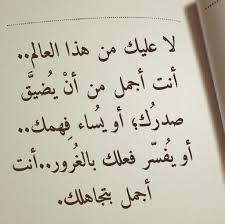 لا عليك من هذا العالم..
أنت أجمل من أنْ يُضيَّق
صدرُك؛ أو يُساء فِهمك..
أو يُفسّر فعلك بالغُرور..أنت
أجمل بتجاهلك.